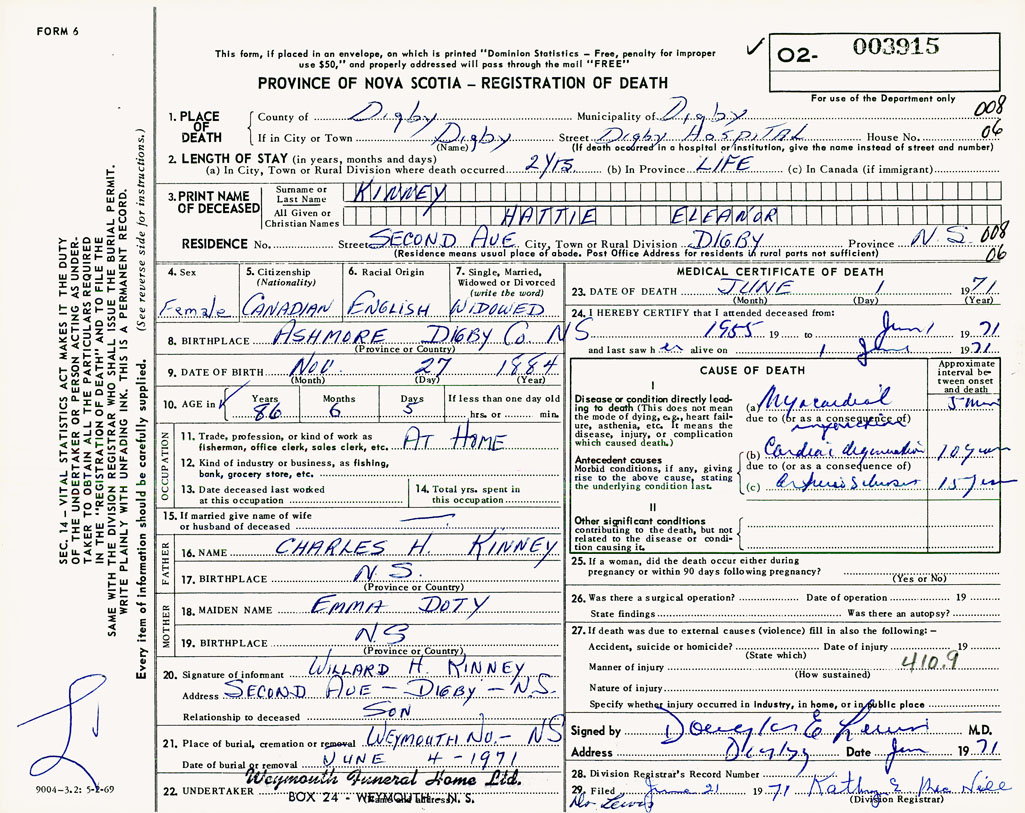 FORM 6
This form, if placed in an envelope, on which is printed "Dominion Statistics – Free, penalty for improper
use $50," and properly addressed will pass through the mail "FREE"
PROVINCE OF NOVA SCOTIA – REGISTRATION OF DEATH
✓ O2- 003915
For use of the Department only
008
06
1. PLACE OF DEATH
County of Digby Municipality of Digby
If in City or Town Digby Street Digby Hospital House No.
(Name) (If death occurred in a hospital or institution, give the name instead of street and number)
2. LENGTH OF STAY (in years, months and days)
(a) In City, Town or Rural Division where death occurred 2 yrs (b) In Province LIFE (c) In Canada (if immigrant)
3. PRINT NAME OF DECEASED
Surname or Last Name KINNEY
All Given or Christian Names HATTIE ELEANOR
RESIDENCE No. Street SECOND AVE City, Town or Rural Division DIGBY Province N S 008
(Residence means usual place of abode. Post Office Address for residents in rural parts not sufficient) 06
4. Sex
Female
5. Citizenship
(Nationality)
CANADIAN
6. Racial Origin
ENGLISH
7. Single, Married,
Widowed or Divorced
(write the word)
WIDOWED
8. BIRTHPLACE ASHMORE DIGBY CO NS
(Province or Country)
9. DATE OF BIRTH Nov. 27 1884
(Month) (Day) (Year)
10. AGE in Years 86 Months 6 Days 5 If less than one day old
hrs. or min.
OCCUPATION
11. Trade, profession, or kind of work as
fisherman, office clerk, sales clerk, etc. AT HOME
12. Kind of industry or business, as fishing,
bank, grocery store, etc.
13. Date deceased last worked
at this occupation
14. Total yrs. spent in
this occupation
15. If married give name of wife
or husband of deceased —
FATHER
16. NAME CHARLES H. KINNEY
17. BIRTHPLACE N S.
(Province or Country)
MOTHER
18. MAIDEN NAME EMMA DOTY
19. BIRTHPLACE N S
(Province or Country)
20. Signature of informant WILLARD H. KINNEY
Address SECOND AVE – DIGBY – N.S.
Relationship to deceased SON
21. Place of burial, cremation or removal WEYMOUTH NO. – NS
Date of burial or removal JUNE 4 – 1971
22. UNDERTAKER Weymouth Funeral Home Ltd.
(Name and address)
BOX 24 - WEYMOUTH, N. S.
MEDICAL CERTIFICATE OF DEATH
23. DATE OF DEATH JUNE 1 1971
(Month) (Day) (Year)
24. I HEREBY CERTIFY that I attended deceased from:
1955 19 to Jun 1 1971
and last saw her alive on 1 June 1971
CAUSE OF DEATH
Approximate
interval be-
tween onset
and death
I
Disease or condition directly lead-
ing to death (This does not mean
the mode of dying, e.g., heart fail-
ure, asthenia, etc. It means the
disease, injury, or complication
which caused death.)
(a) Myocardial 5 min
due to (or as a consequence of)
Antecedent causes
Morbid conditions, if any, giving
rise to the above cause, stating
the underlying condition last.
(b) Cardiac degeneration 10 years
due to (or as a consequence of)
(c) 15 years
II
Other significant conditions
contributing to the death, but not
related to the disease or condi-
tion causing it.
25. If a woman, did the death occur either during
pregnancy or within 90 days following pregnancy?
(Yes or No)
26. Was there a surgical operation? Date of operation 19
State findings Was there an autopsy?
27. If death was due to external causes (violence) fill in also the following: –
Accident, suicide or homicide? Date of injury 19
(State which)
Manner of injury 410.9
(How sustained)
Nature of injury
Specify whether injury occurred in industry, in home, or in public place
Signed by Douglas E Lewis M.D.
Address Digby Date Jun 1971
28. Division Registrar's Record Number
29. Filed June 21 1971
(Division Registrar)
Dr. Lewis
SEC. 14 – VITAL STATISTICS ACT MAKES IT THE DUTY
OF THE UNDERTAKER OR PERSON ACTING AS UNDER-
TAKER TO OBTAIN ALL THE PARTICULARS REQUIRED
IN THE "REGISTRATION OF DEATH" AND TO FILE THE
SAME WITH THE DIVISION REGISTRAR WHO SHALL ISSUE THE BURIAL PERMIT.
WRITE PLAINLY WITH UNFADING INK. THIS IS A PERMANENT RECORD.
Every item of information should be carefully supplied. (See reverse side for instructions.)
9004-3.2: 5-2-69